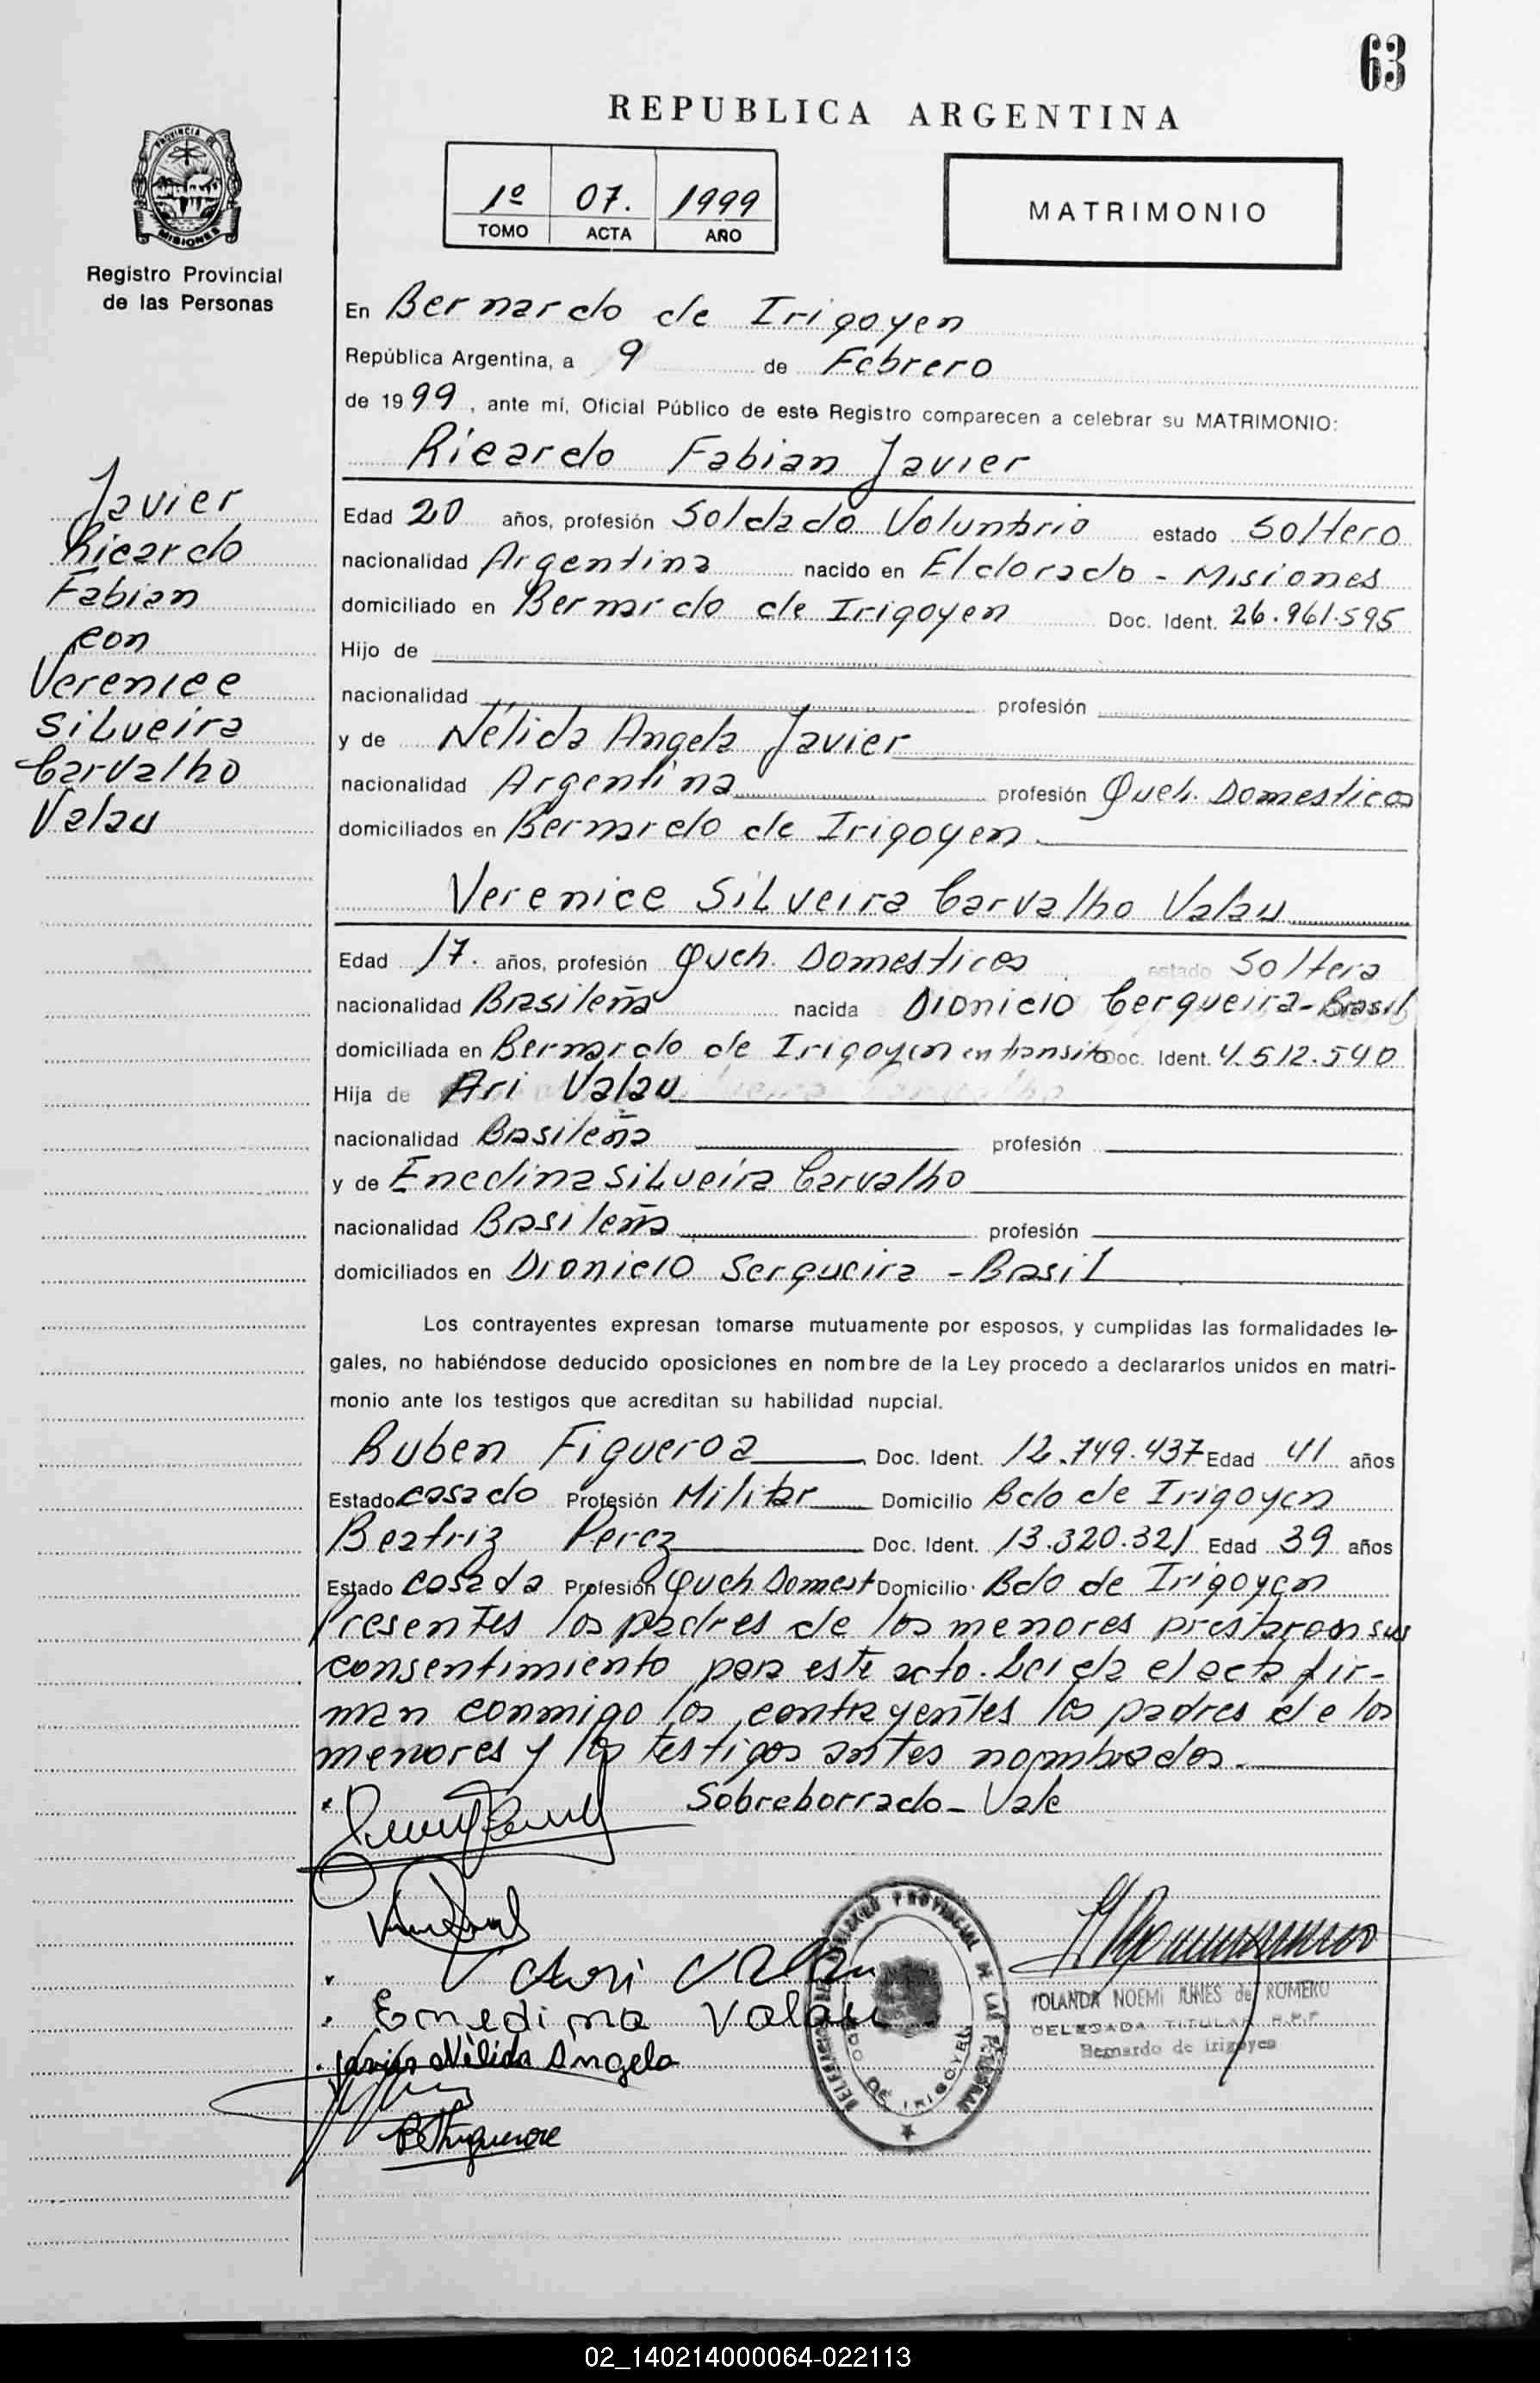 63
REPUBLICA ARGENTINA
1º 07. 1999
TOMO ACTA AÑO
MATRIMONIO
PROVINCIA DE
MISIONES
Registro Provincial
de las Personas
En Bernardo de Irigoyen
República Argentina, a 9 de Febrero
de 1999, ante mí, Oficial Público de este Registro comparecen a celebrar su MATRIMONIO:
Ricardo Fabian Javier
Javier
Ricardo
Fabian
con
Verenice
Silveira
Carvalho
Valau
Edad 20 años, profesión Soldado Voluntario estado Soltero
nacionalidad Argentina nacido en Eldorado - Misiones
domiciliado en Bernardo de Irigoyen Doc. Ident. 26.961.595
Hijo de
nacionalidad profesión
y de Nélida Angela Javier
nacionalidad Argentina profesión Queh. Domesticos
domiciliados en Bernardo de Irigoyen.
Verenice Silveira Carvalho Valau
Edad 17. años, profesión Queh. Domesticos estado Soltera
nacionalidad Brasileña nacida Dionicio Cerqueira - Brasil
domiciliada en Bernardo de Irigoyen en transito Doc. Ident. 4.512.540
Hija de Ari Valau
nacionalidad Brasileña profesión
y de Enedina Silveira Carvalho
nacionalidad Brasileña profesión
domiciliados en Dionicio Serqueira - Brasil
Los contrayentes expresan tomarse mutuamente por esposos, y cumplidas las formalidades le-
gales, no habiéndose deducido oposiciones en nombre de la Ley procedo a declararlos unidos en matri-
monio ante los testigos que acreditan su habilidad nupcial.
Ruben Figueroa Doc. Ident. 12.749.437 Edad 41 años
Estado casado Profesión Militar Domicilio Bdo de Irigoyen
Beatriz Perez Doc. Ident. 13.320.321 Edad 39 años
Estado casada Profesión Queh Domest Domicilio Bdo de Irigoyen
Presentes los padres de los menores prestaron sus
consentimiento para este acto. Leida el acta fir-
man conmigo los contrayentes los padres de los
menores y los testigos antes nombrados.
Sobreborrado - Vale
Ari Valau
Enedina Valau
Javier Nélida Angela
B Figueroa
REGISTRO PROVINCIAL DE LAS PERSONAS
DE IRIGOYEN
YOLANDA NOEMI JUNES de ROMERO
DELEGADA TITULAR R.P.P.
Bernardo de Irigoyen
02_140214000064-022113